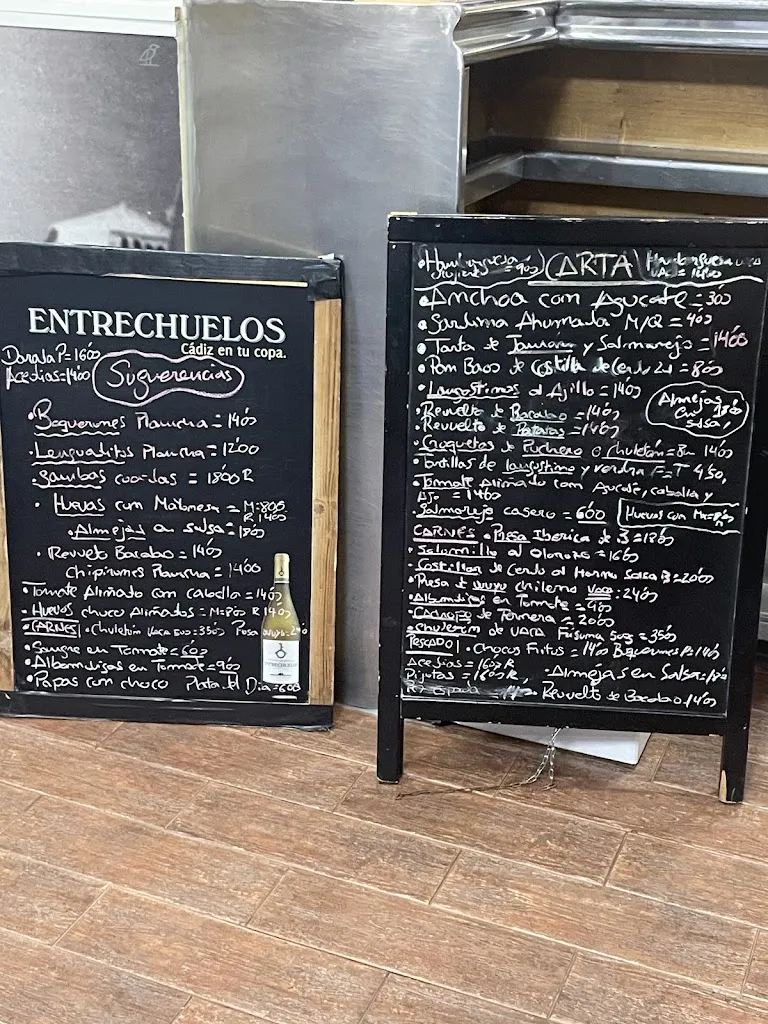 ENTRECHUELOS
Cádiz en tu copa.
Dorada P=16'00
Acedias=14'00
Suguerencias
Boquerones Plancha = 14'00
Lenguaditos Plancha = 12'00
Gambas = 18'00 R
Huevas con Mahonesa = M=8'00
R 14'00
Almejas en salsa = 18'00
Revuelto Bacalao = 14'00
Chipirones Plancha = 14'00
Tomate Aliñado con caballa = 14'00
Huevos choco Aliñados = M=8'00 R 14'00
CARNES • Chuletón Vaca 500=35'00 Presa
Sangre en Tomate = 6'00
Albondigas en Tomate = 9'00
Papas con choco Plato del Dia = 6'00
ENTRECHUELOS
Hamburguesa = 9'00
CARTA
Hamburguesa
Anchoa con Aguacate = 3'00
Sardina Ahumada M/Q = 4'00
Tarta de Jamon y Salmorejo = 14'00
Pan Bao de Costilla de Cerdo = 8'00
Langostinos al Ajillo = 14'00
Revuelto de Bacalao = 14'00
Revuelto de Patatas = 14'00
Almejas
en 18'00
salsa
Croquetas de Puchero o chuletón = 14'00
Tortillas de langostino y verdura 4'50
Tomate Aliñado con Aguacate, caballa y
Ajo = 14'00
Salmorejo casero = 6'00
Huevas con
CARNES • Presa Iberica de B = 18'00
Solomillo al Oloroso = 16'00
Costillar de Cerdo al Horno Salsa B = 20'00
Presa de chileno Vaca = 24'00
Albondigas en Tomate = 9'00
Cachopo de Ternera = 20'00
Chuletón de VACA Frisona 500g = 35'00
PESCADO • Chocos Fritos = 14'00 Boquerones P = 14'00
Acedias = 16'00 R
Pijotas = 16'00 R, • Almejas en Salsa = 18'00
• Revuelto de Bacalao 14'00